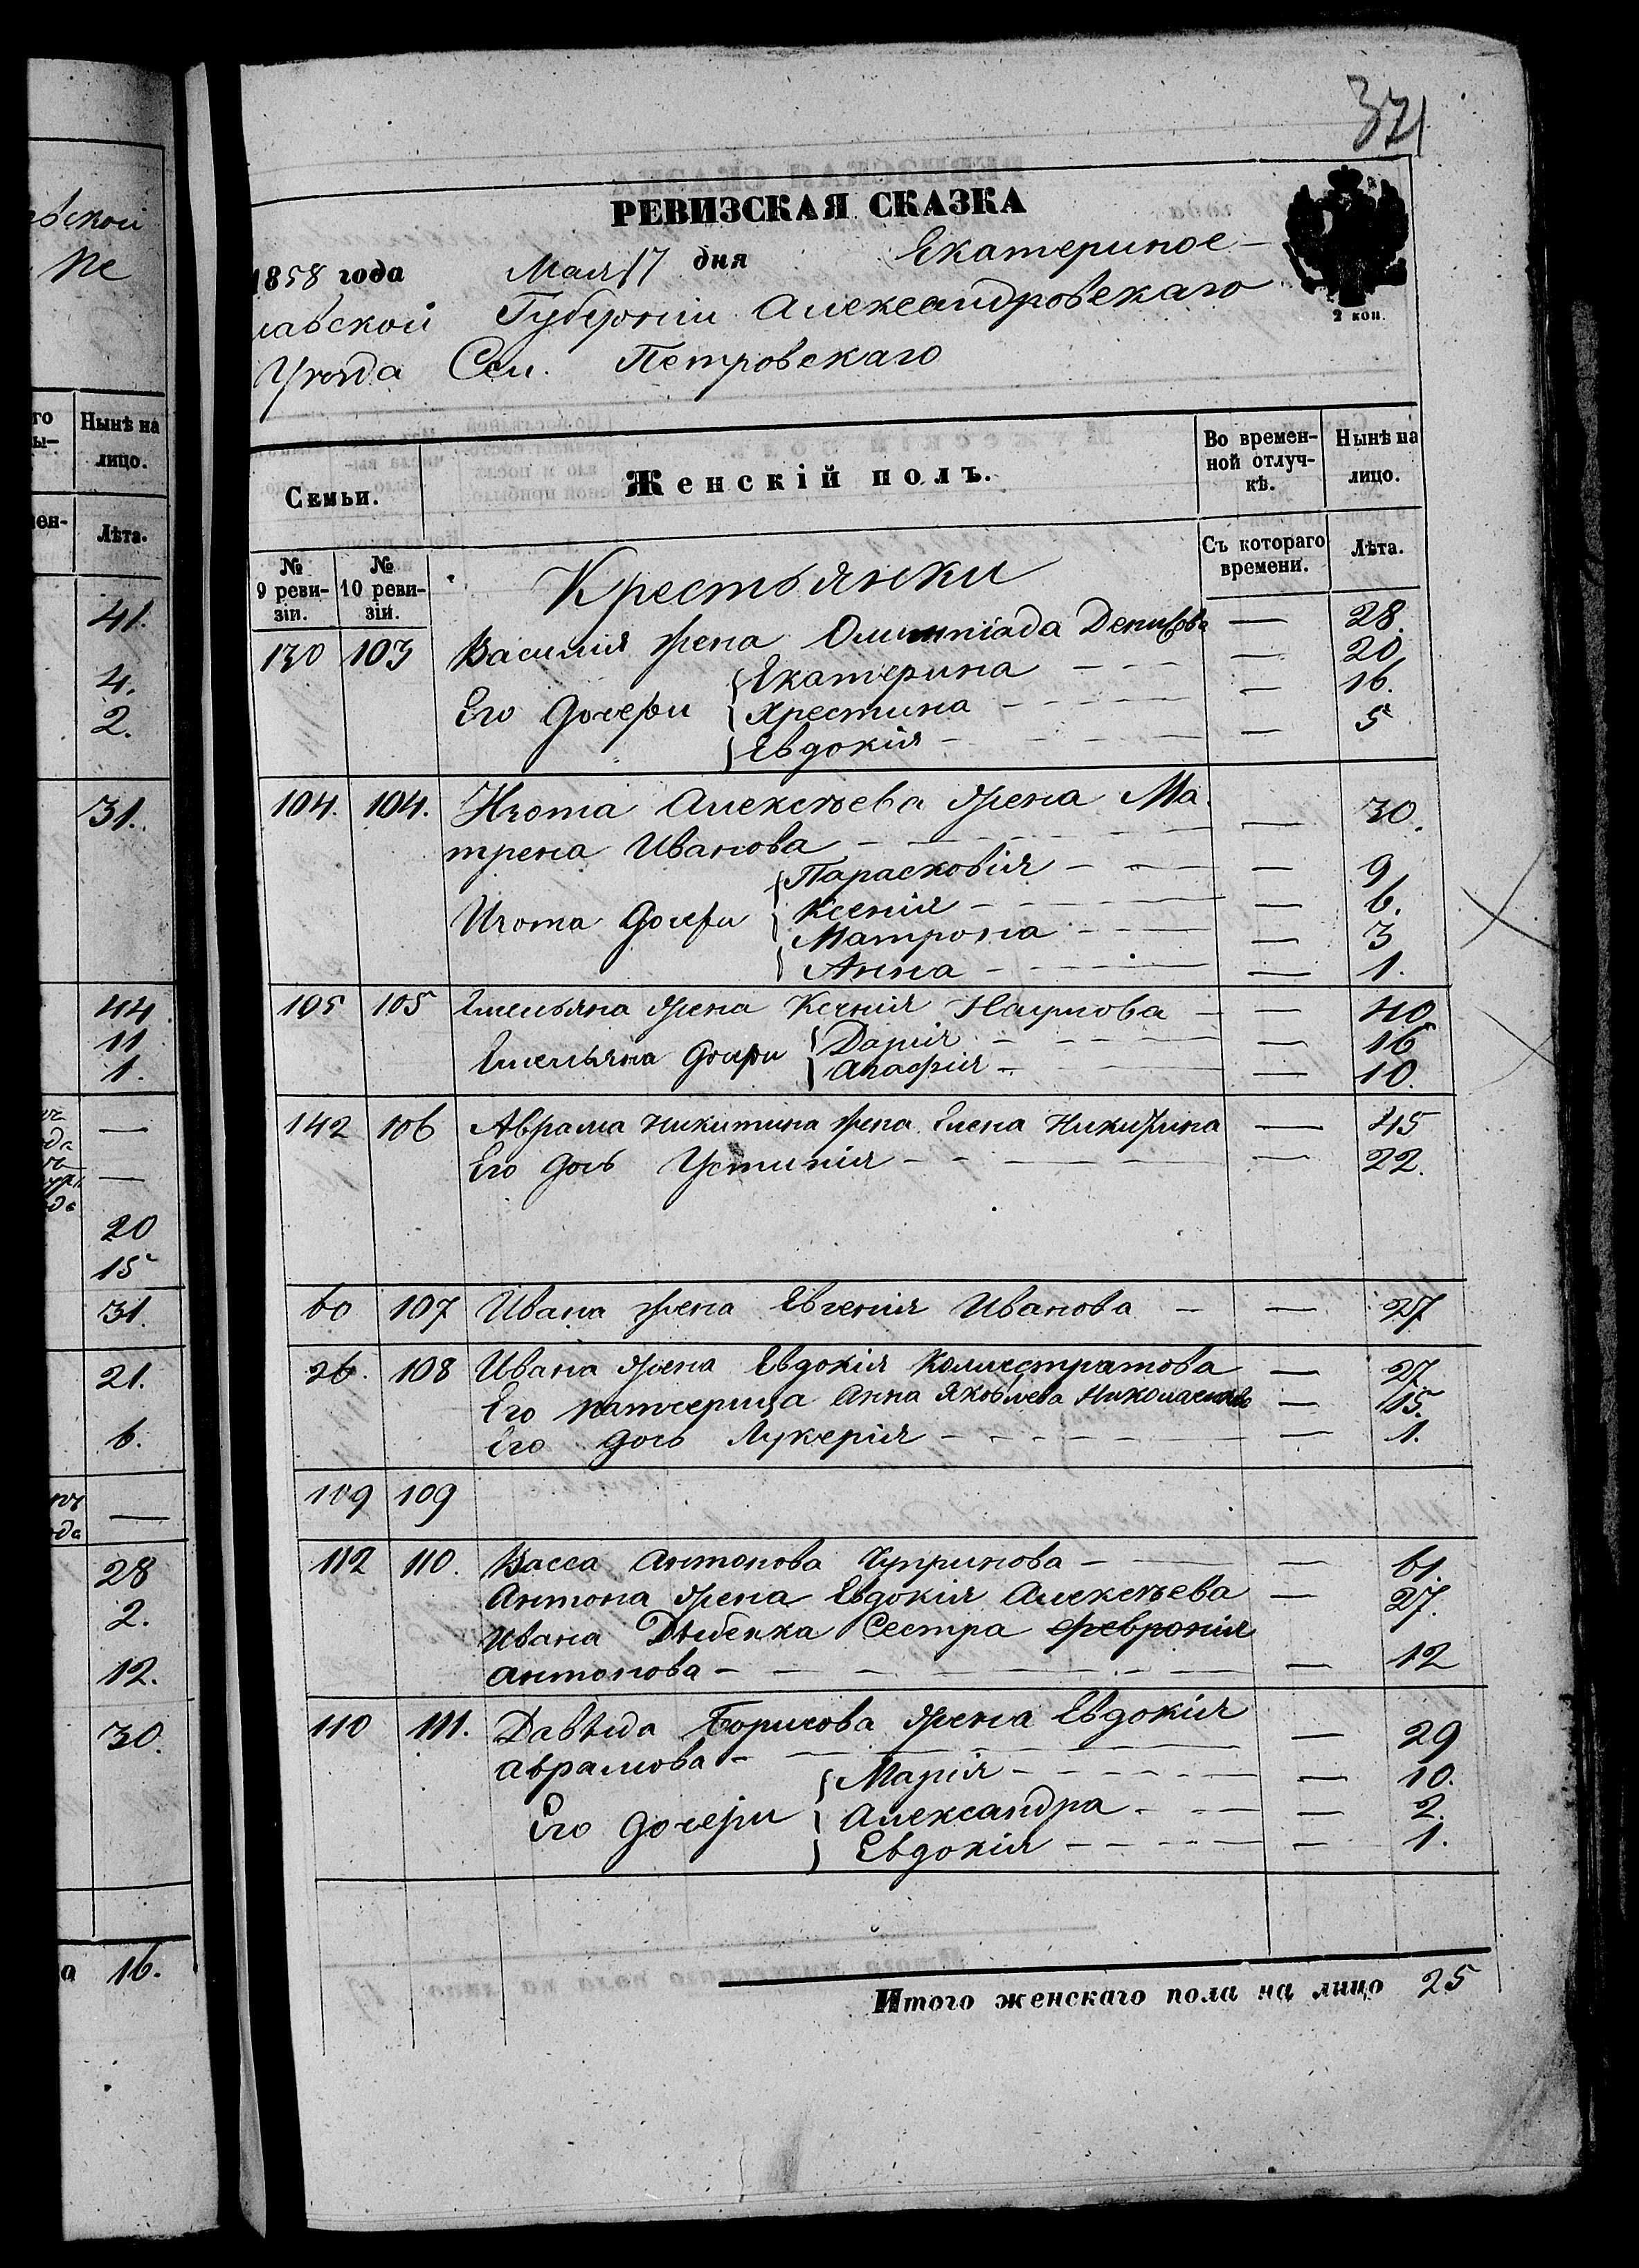 371
РЕВИЗСКАЯ СКАЗКА
1858 года Мая 17 дня Екатеринос-
лавской Губерніи Александровскаго
Уѣзда Сел. Петровскаго
2 коп.
Семьи. Женскій полъ. Во времен-ной отлуч-кѣ. Нынѣ на лицо.
№ 9 реви-зіи. № 10 реви-зіи. Съ котораго времени. Лѣта.
Крестьянки
130 103 Василія жена Олимпіада Денисова — 28.
Его дочери Екатерина — 20
Хрестина — 16.
Евдокія — 5
104. 104. Изота Алексѣева жена Ма-
трена Иванова — 30.
Изота дочери Парасковія — 9
Ксенія — 6.
Матрона — 3
Анна — 1.
105 105 Емельяна жена Ксенія Наумова — 40
Емельяна дочери Дарія — 16
Агафія — 10.
142 106 Аврама Никитина жена Елена Никифина — 45
Его дочь Устинія — 22.
60 107 Ивана жена Евгенія Иванова — 27
26. 108 Ивана жена Евдокія Калистратова — 27
Его падчерица Анна Яковлева — 15.
Его дочь Лукерія — 1.
109 109
112 110. Васса Антонова Чупринова — 61.
Антона жена Евдокія Алексѣева — 27.
Ивана Сестра Февронія
Антонова — 12
110 111. Давыда Борисова жена Евдокія
Аврамова — 29
Его дочери Марія — 10.
Александра — 2.
Евдокія — 1.
Итого женскаго пола на лицо 25
вской
Нынѣ на
лицо.
Лѣта.
41.
4.
2.
31.
44
11
1.
—
—
20
15
31.
21.
6.
—
28
2.
12.
30.
а 16.